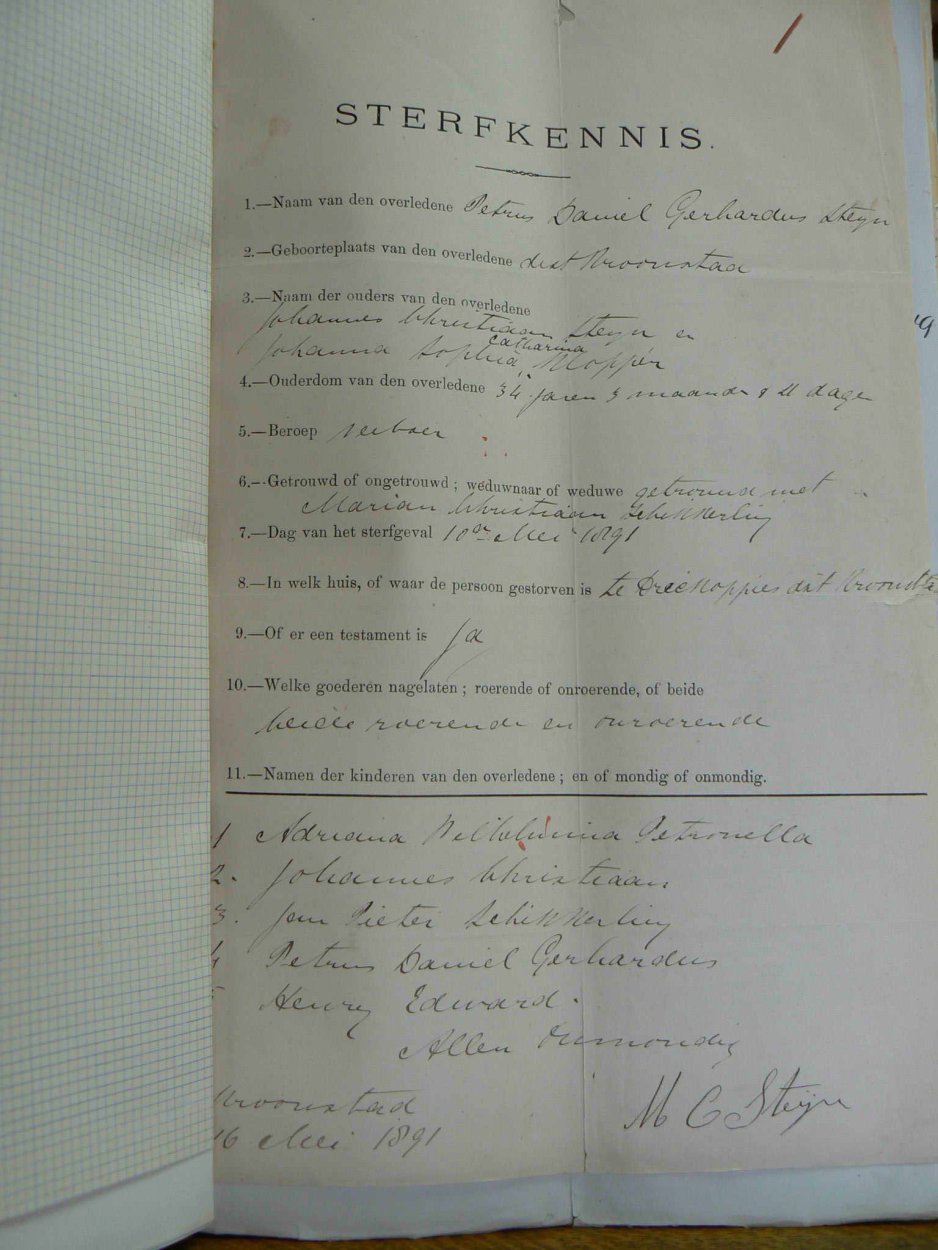 STERFKENNIS.
1.—Naam van den overledene Petrus Daniel Gerhardus Steyn
2.—Geboorteplaats van den overledene dist Kroonstad
3.—Naam der ouders van den overledene
Johannes Christiaan Steyn en
Johanna Sophia Catharina Klopper
4.—Ouderdom van den overledene 34 jaren 3 maanden & 21 dage
5.—Beroep Veeboer
6.—Getrouwd of ongetrouwd; weduwnaar of weduwe getrouwd met
Marian Christiaan Schikkerling
7.—Dag van het sterfgeval 10de Mei 1891
8.—In welk huis, of waar de persoon gestorven is te Driekoppies dist Kroonsta
9.—Of er een testament is Ja
10.—Welke goederen nagelaten; roerende of onroerende, of beide
beide roerende en onroerende
11.—Namen der kinderen van den overledene; en of mondig of onmondig.
1 Adriana Wilhelmina Petronella
2. Johannes Christiaan
3. Jan Pieter Schikkerling
4 Petrus Daniel Gerhardus
5 Henry Edward.
Allen Onmondig
Kroonstad
M C Steyn
16 Mei 1891